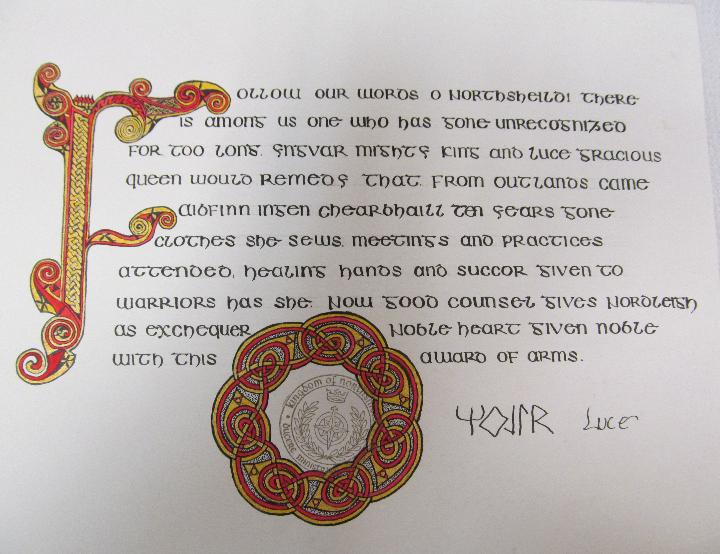 Follow our words o Northsheild! There
is among us one who has gone unrecognized
for too long. Yngvar mighty King and Luce gracious
queen would remedy that. From Outlands came
Aibfinn ingen Chearbhaill ten years gone
clothes she sews, meetings and practices
attended, healing hands and succor given to
warriors has she. Now good counsel gives Nordleigh
as exchequer Noble heart given noble
with this award of arms.
kingdom of
Luce